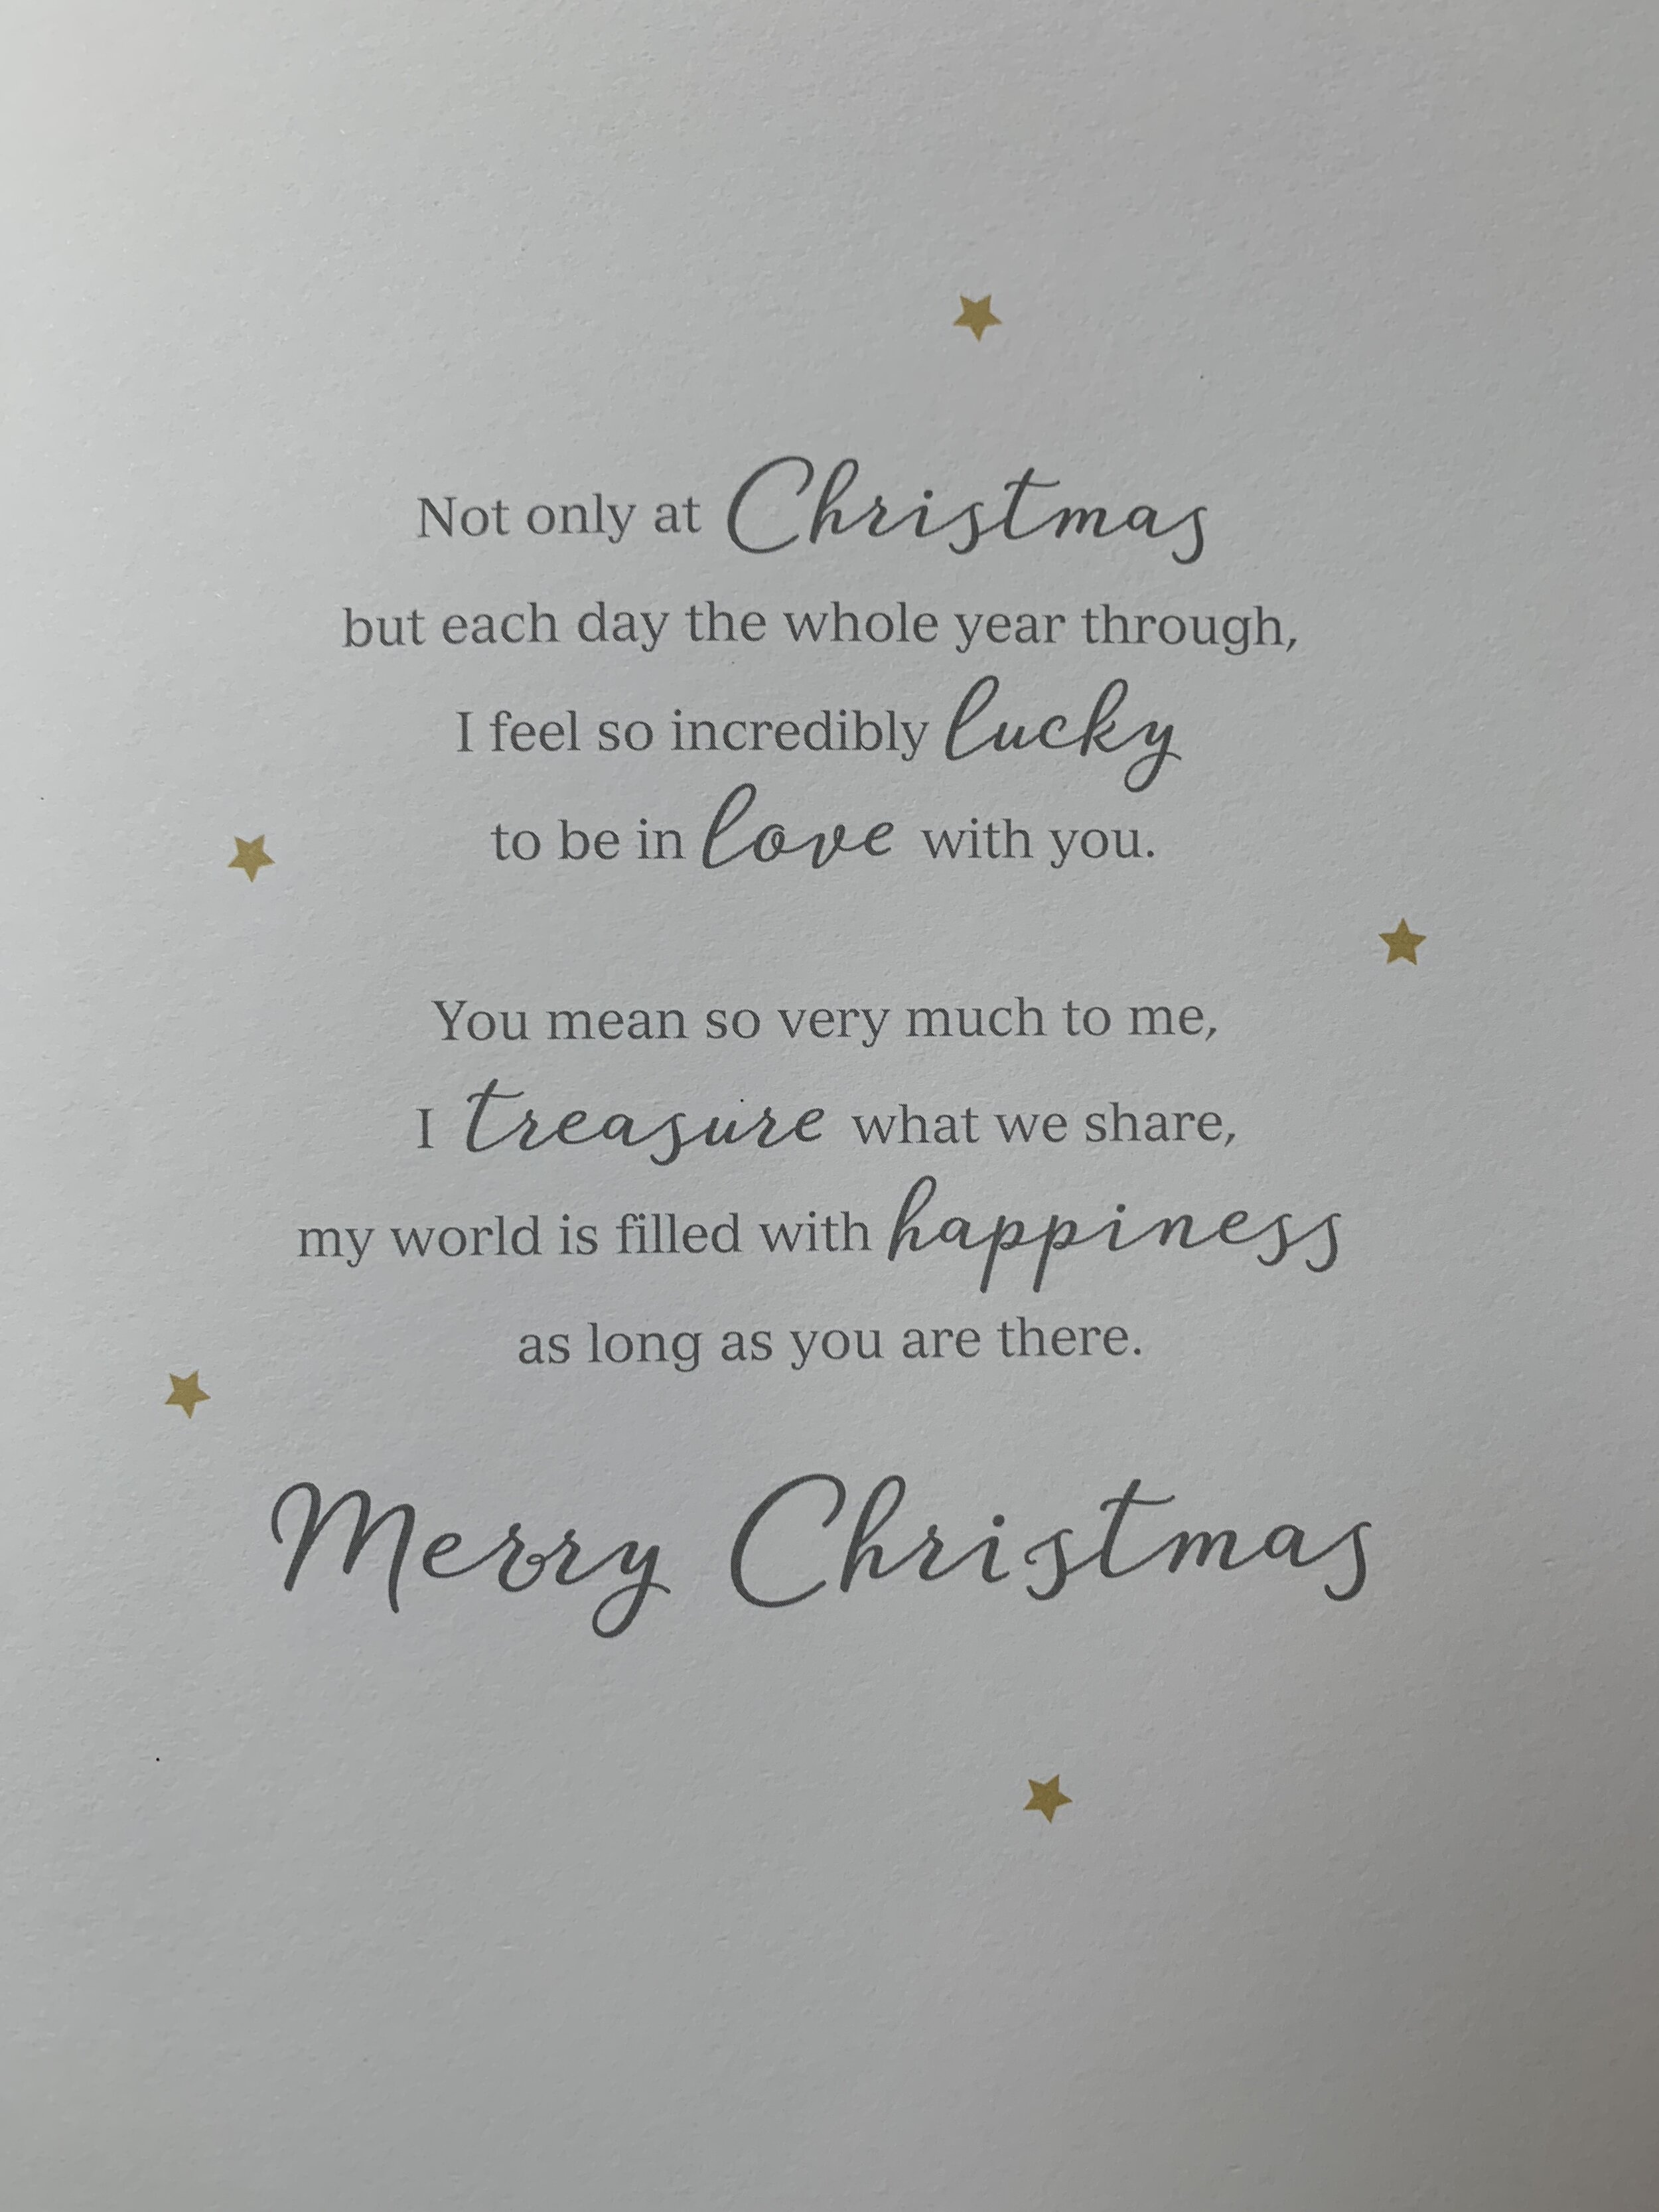 Not only at Christmas
but each day the whole year through,
I feel so incredibly lucky
to be in love with you.
You mean so very much to me,
I treasure what we share,
my world is filled with happiness
as long as you are there.
Merry Christmas